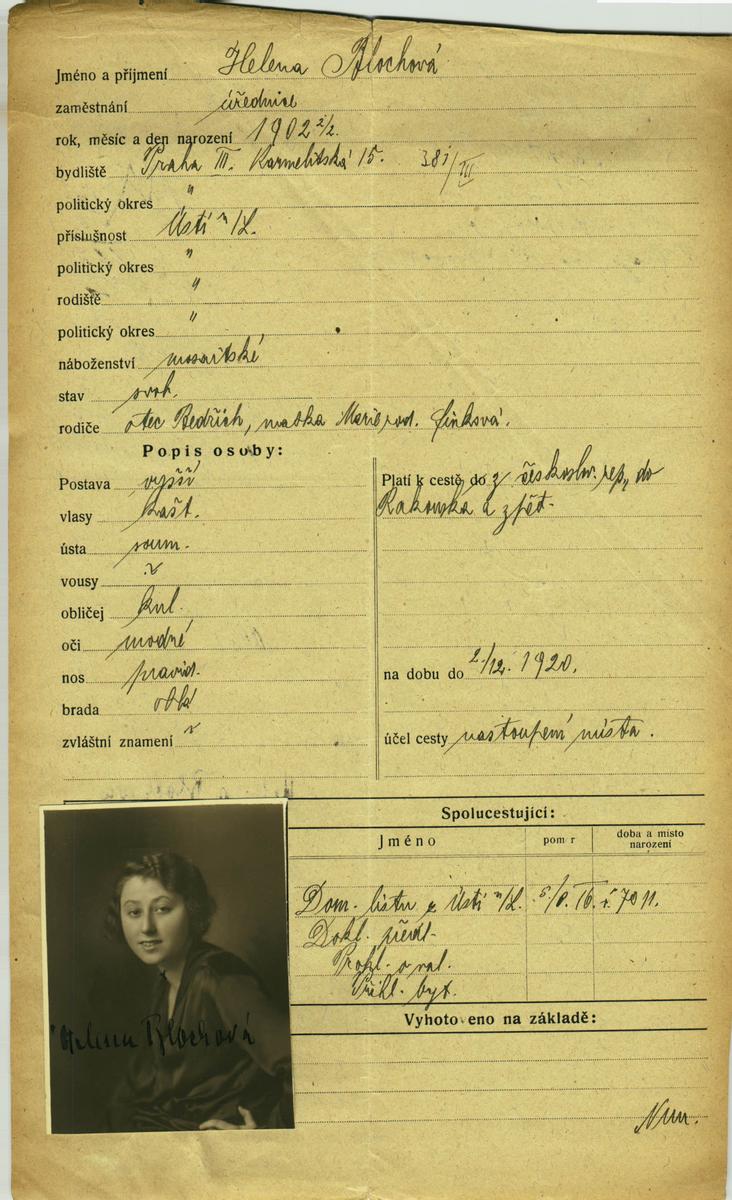 Jméno a příjmení Helena Blochová
zaměstnání úřednice
rok, měsíc a den narození 1902 2/2.
bydliště Praha III. Karmelitská 15. 381/III
politický okres "
příslušnost Ústí n/L.
politický okres "
rodiště "
politický okres "
náboženství mosaitské
stav svob.
rodiče otec Bedřich, matka Marie rod. Finksvá.
Popis osoby:
Postava vyšší
vlasy kašt.
ústa soum.
vousy
obličej kul.
oči modré
nos pravid.
brada oblá
zvláštní znamení
Platí k cestě do z českoslov. rep. do
Rakouska a zpět.
na dobu do 2./12. 1920.
účel cesty nastoupení místa.
Spolucestující:
Jméno
pom r
doba a místo
narození
Dom. listu z Ústí n/L. č. 7011.
Dokl. předl.
Přihl. byt.
Vyhotoveno na základě:
Helena Blochová